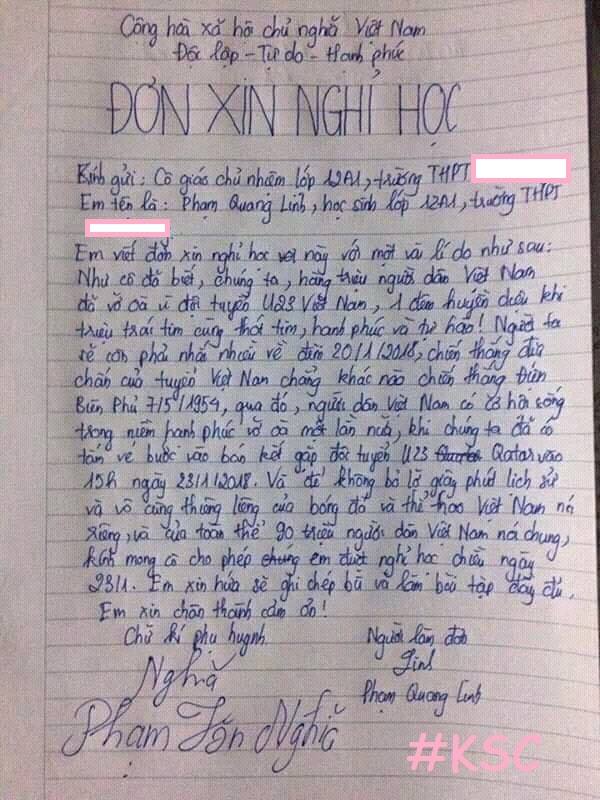 Cộng hoà xã hội chủ nghĩa Việt Nam
Độc lập - Tự do - Hạnh phúc
ĐƠN XIN NGHỈ HỌC
Kính gửi: Cô giáo chủ nhiệm lớp 12A1, trường THPT
Em tên là: Phạm Quang Linh, học sinh lớp 12A1, trường THPT
Em viết đơn xin nghỉ học này với một vài lí do như sau:
Như cô đã biết, chúng ta, hàng triệu người dân Việt Nam
đã vỡ oà vì đội tuyển U23 Việt Nam, 1 đêm huyền diệu khi
triệu trái tim cùng thót tim, hạnh phúc và tự hào! Người ta
sẽ còn phải nhắc nhiều về đêm 20/1/2018, chiến thắng địa
chấn của tuyển Việt Nam chẳng khác nào chiến thắng Điện
Biên Phủ 7/5/1954, qua đó, người dân Việt Nam có cơ hội sống
trong niềm hạnh phúc vỡ oà một lần nữa, khi chúng ta đã có
tấm vé bước vào bán kết gặp đội tuyển U23 Qatar vào
15h ngày 23/1/2018. Và để không bỏ lỡ giây phút lịch sử
và vô cùng thiêng liêng của bóng đá và thể thao Việt Nam nói
riêng, và của toàn thể 90 triệu người dân Việt Nam nói chung,
kính mong cô cho phép em được nghỉ học chiều ngày
23/1. Em xin hứa sẽ ghi chép bù và làm bài tập đầy đủ.
Em xin chân thành cảm ơn!
Chữ kí phụ huynh
Người làm đơn
Nghĩa
Linh
Phạm Quang Linh
Phạm Tấn Nghĩa
#KSC